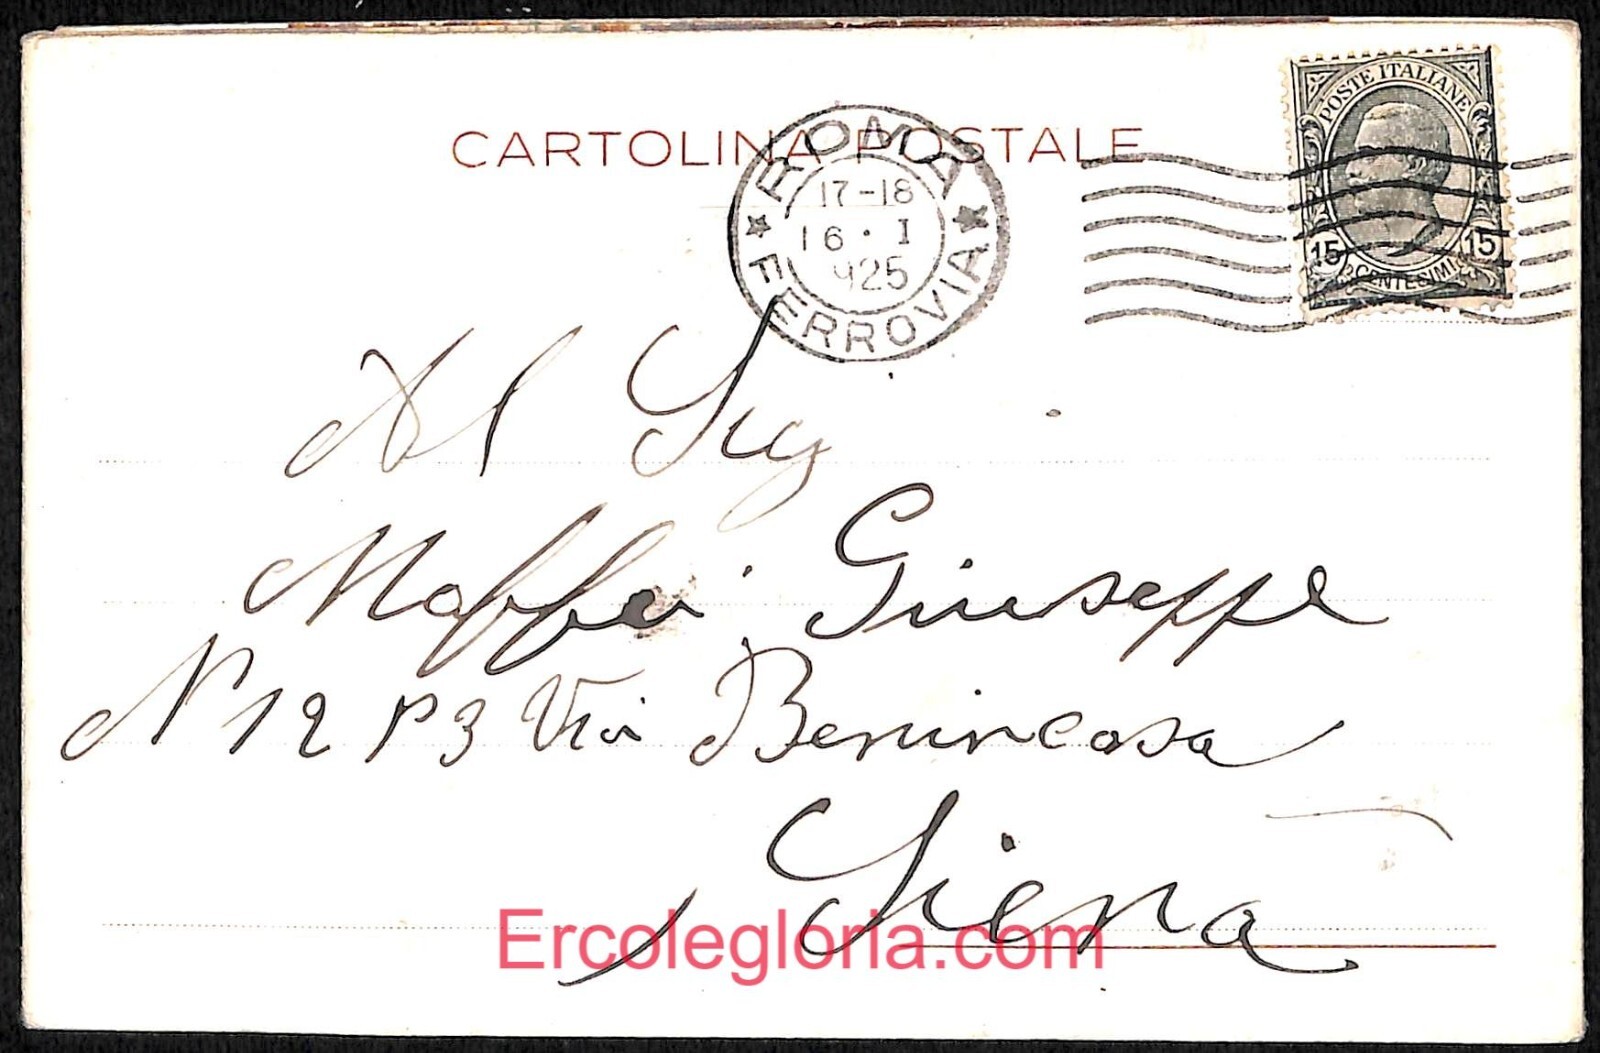 CARTOLINA POSTALE
ROMA
17-18
16 · I
925
FERROVIA
POSTE ITALIANE
15 15
CENTESIMI
Al Sig
Maffei Giuseppe
N 12 P 3 Via Benincasa
Siena
Ercolegloria.com